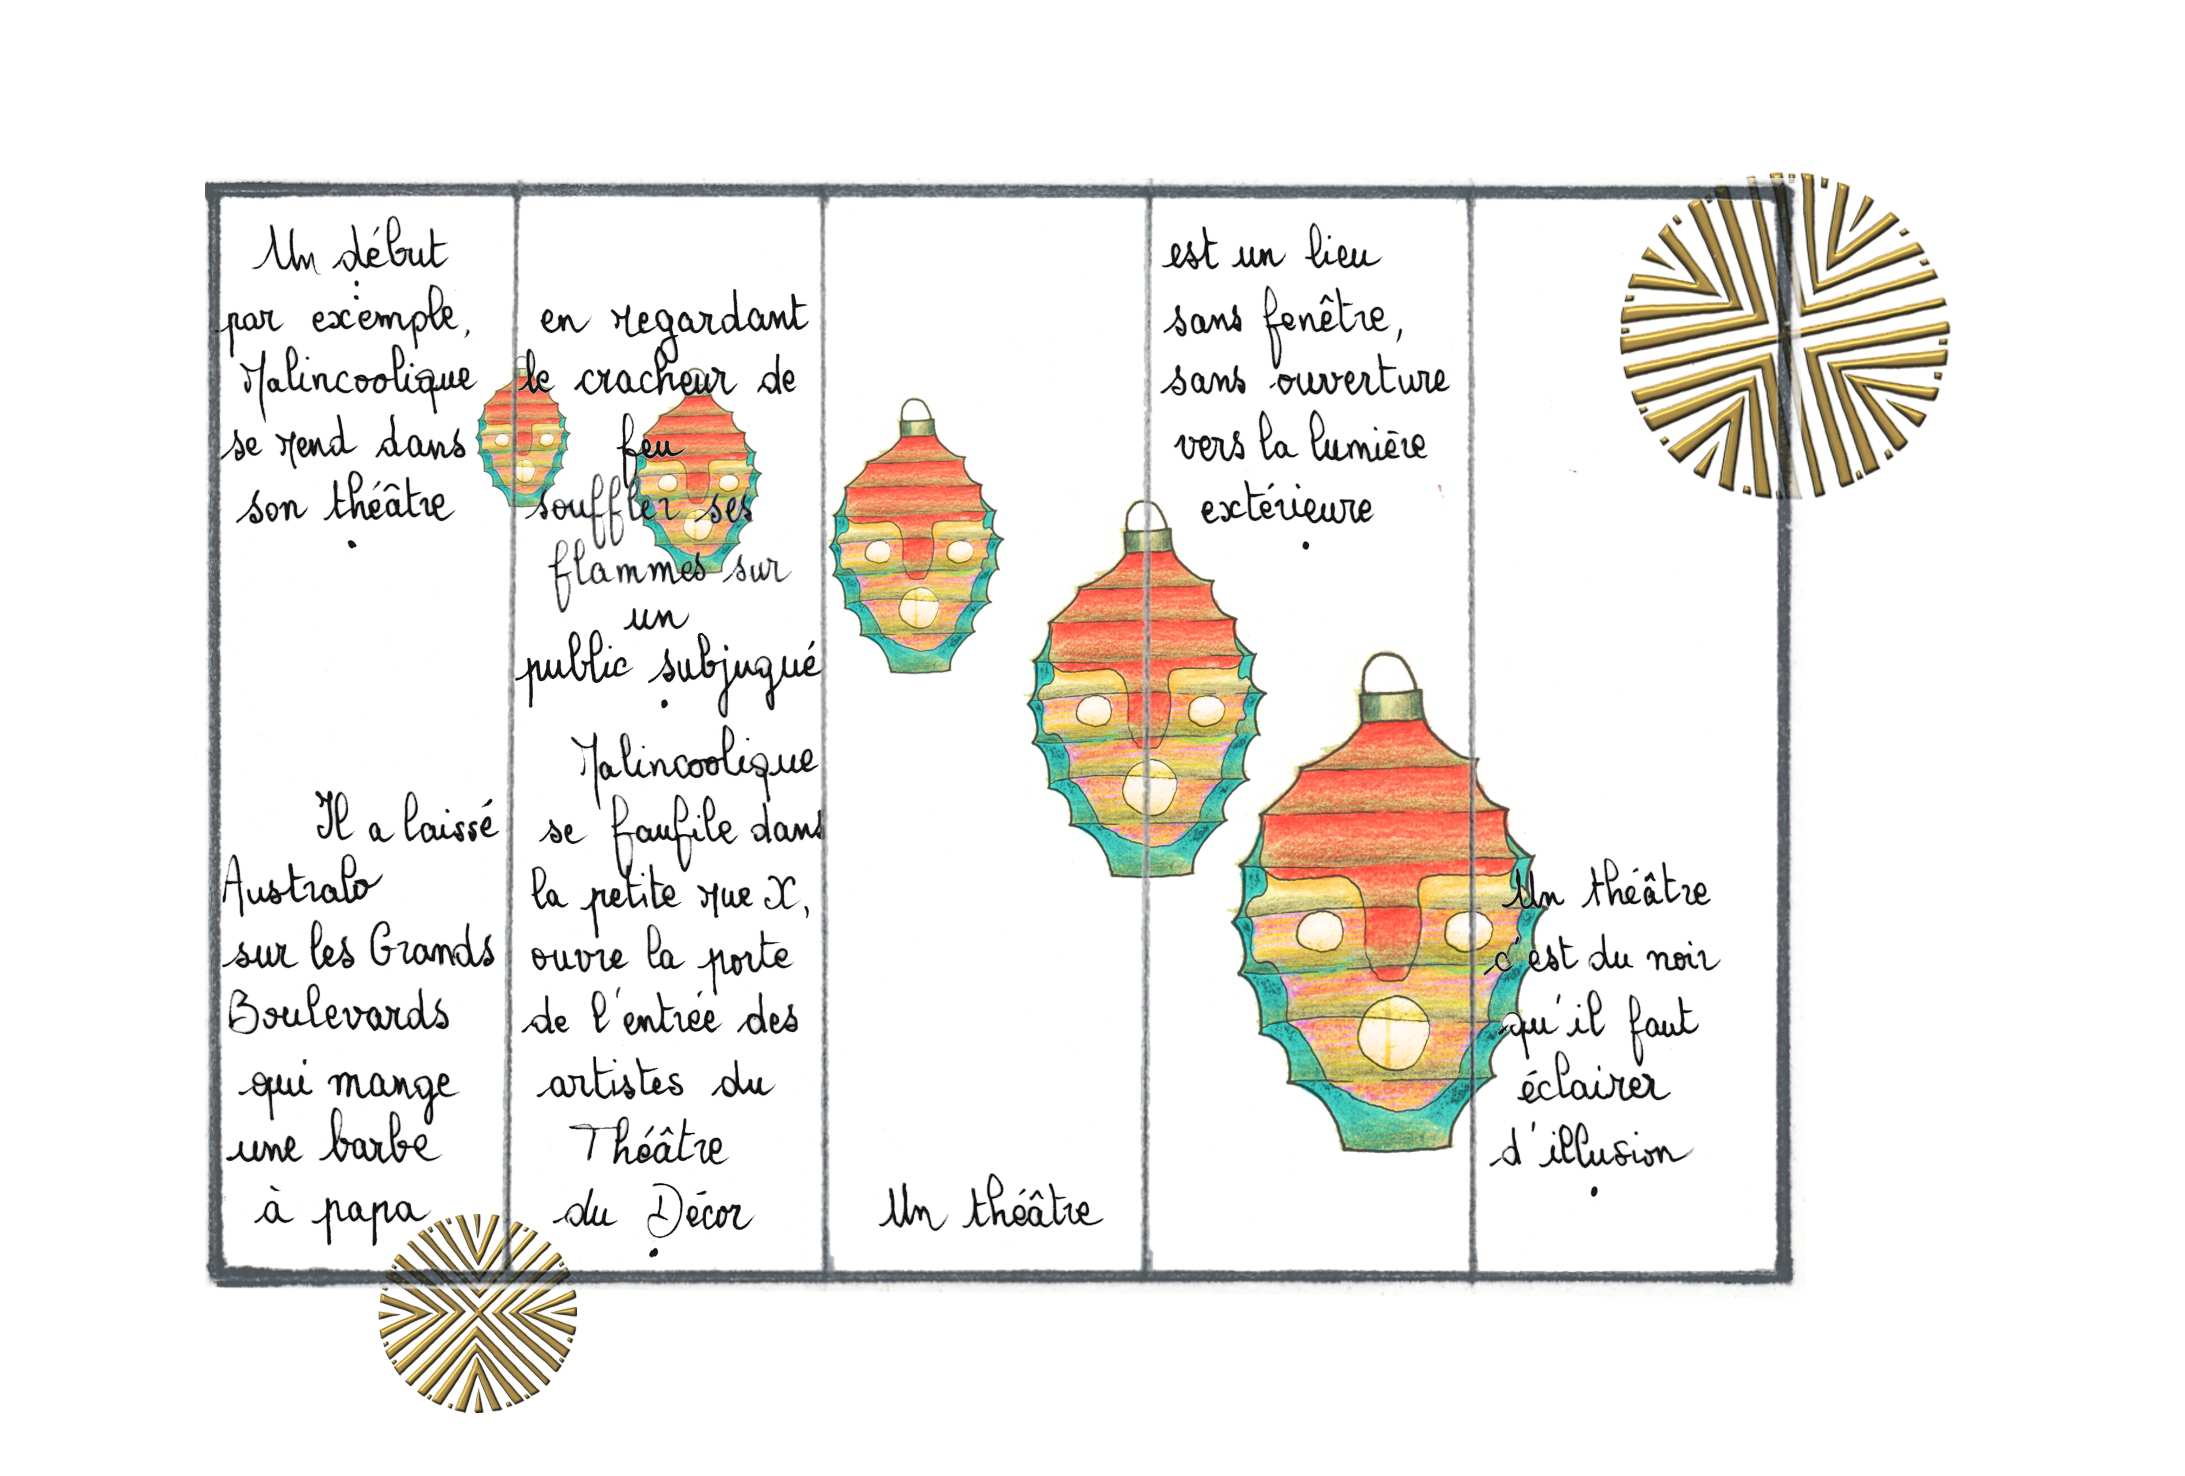 Un début
:
par exemple,
Malincoolique
se rend dans
son théâtre
.
Il a laissé
Australo
sur les Grands
Boulevards
qui mange
une barbe
à papa
en regardant
le cracheur de
feu
souffler ses
flammes sur
un
public subjugué
.
Malincoolique
se faufile dans
la petite rue X,
ouvre la porte
de l'entrée des
artistes du
Théâtre
du Décor
.
Un théâtre
est un lieu
sans fenêtre,
sans ouverture
vers la lumière
extérieure
.
Un théâtre
c'est du noir
qu'il faut
éclairer
d'illusion
.